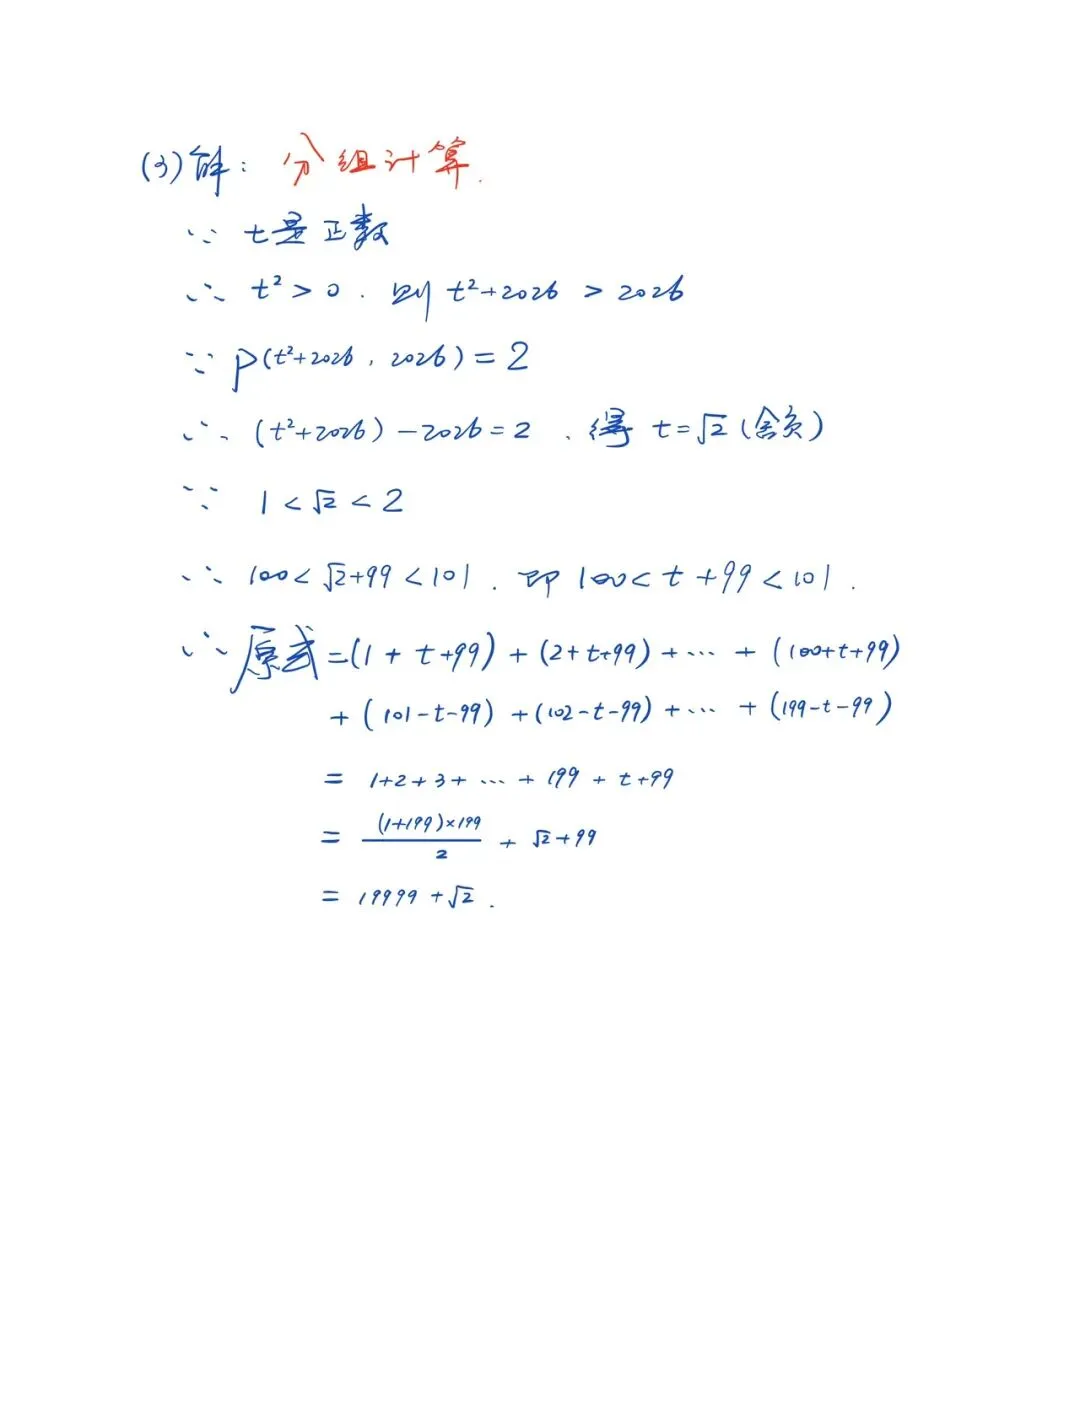 (3)解：分组计算.
∵ t是正数
∴ t²>0. 则 t²+2026 > 2026
∵ P(t²+2026, 2026) = 2
∴ (t²+2026)-2026=2, 得 t=√2 (舍负)
∵ 1<√2<2
∴ 100<√2+99<101. 即 100<t+99<101.
∴ 原式=(1+t+99)+(2+t+99)+…+(100+t+99)
+(101-t-99)+(102-t-99)+…+(199-t-99)
= 1+2+3+…+199+t+99
= (1+199)×199/2 + √2+99
= 19999+√2.